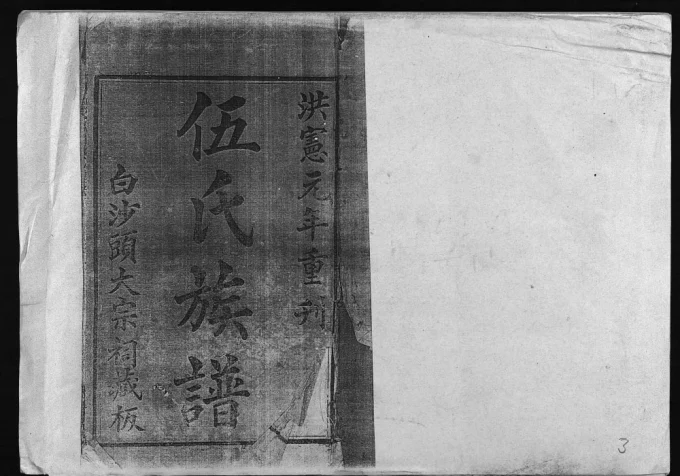 洪憲元年重刊
伍氏族譜
白沙頭大宗祠藏板
3